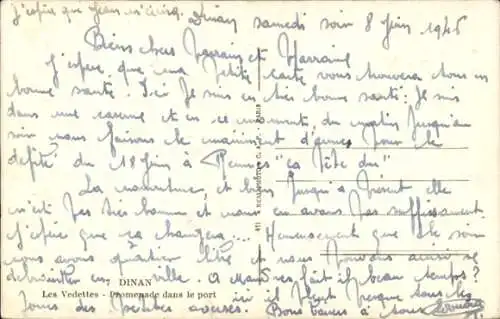 J'espère que Jean m'écrira. Dinan samedi soir 8 Juin 1946
Biens chers Parrain et Marraine
J'espère que ma petite carte vous trouvera tous en
bonne santé. Ici Je suis en très bonne santé. Je suis
dans une caserne et en ce moment du matin jusqu'au
soir nous faisons le maniement d'armes pour le
défilé du 18 Juin à Rennes "ça
La nourriture, et bien Jusqu'à présent elle
n'est pas très bonne et nous en avons pas suffisamment
J'espère que ça changera... Heureusement que le soir
nous avons quartier libre et nous pouvons aussi se
débiner en ville. A fait il beau temps?
ici il pleut presque tous les
Jours des petites averses. Bons baisers à tous
7. DINAN
Les Vedettes - Promenade dans le port